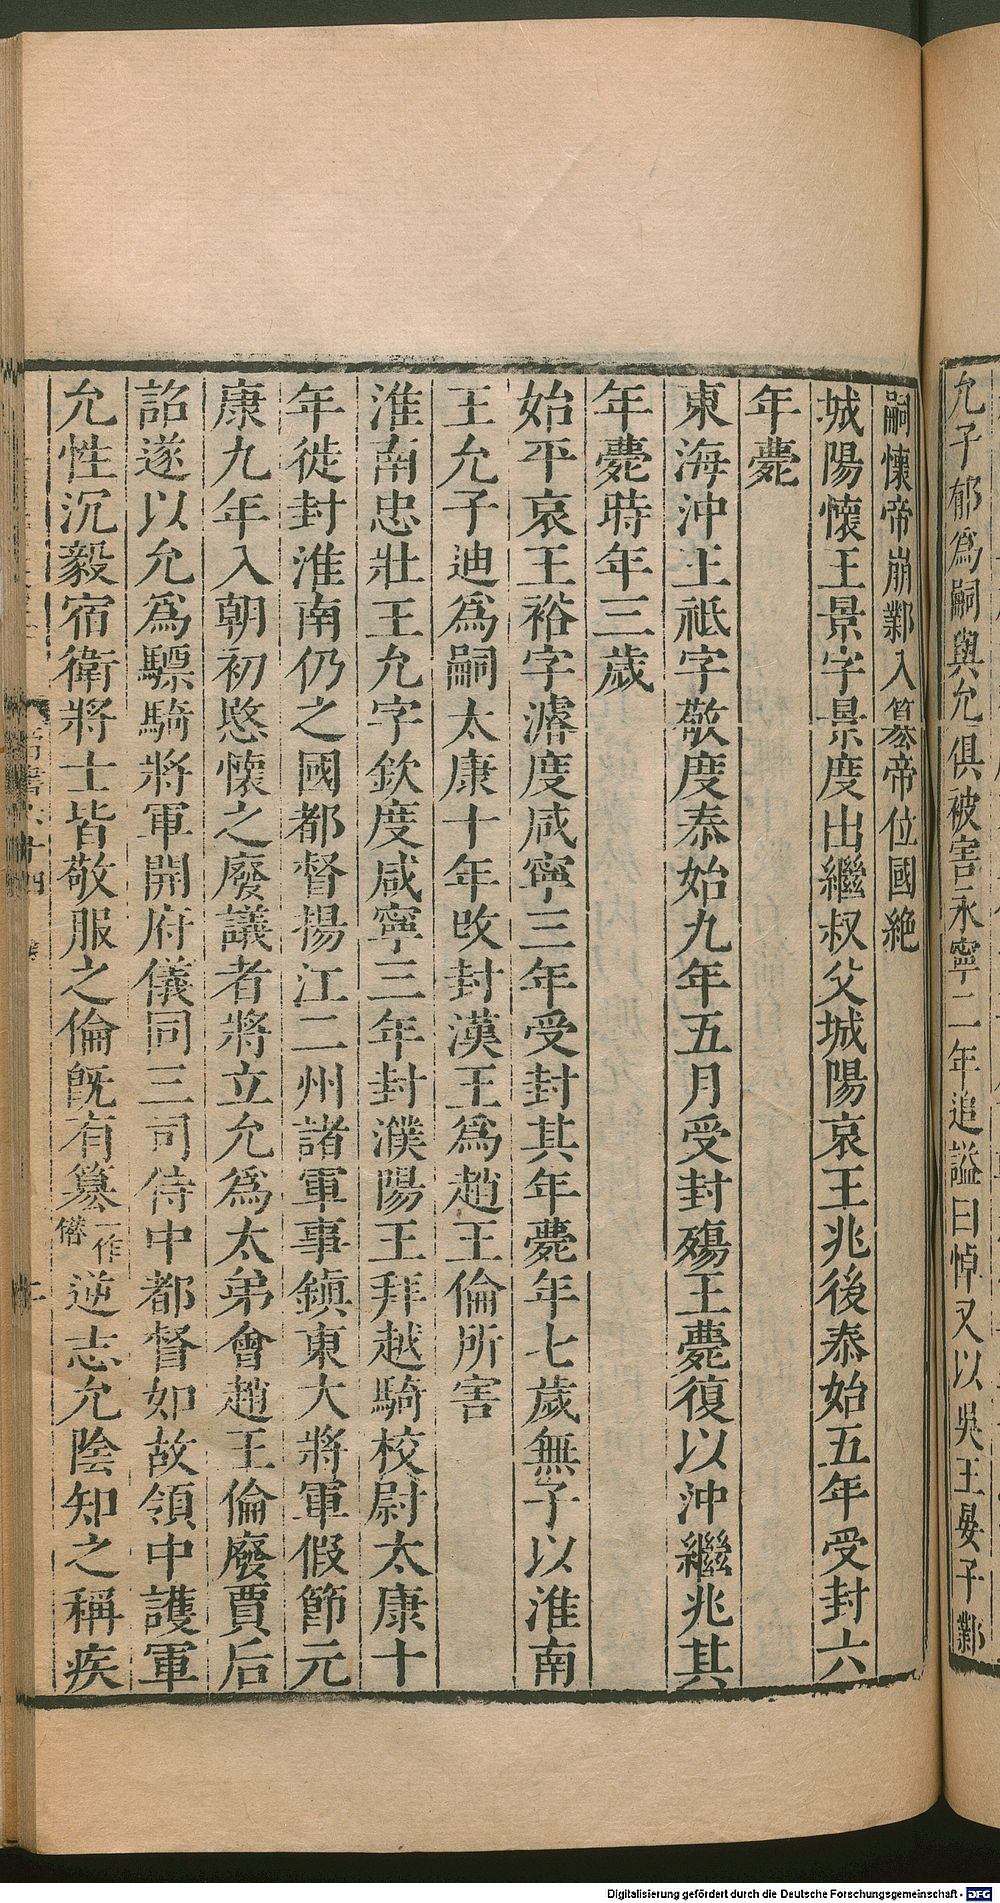 允子郁爲嗣與允俱被害永寧二年追諡曰悼又以吳王晏子鄴
嗣懷帝崩鄴入篡帝位國絶
城陽懷王景字景度出繼叔父城陽哀王兆後泰始五年受封六
年薨
東海沖王祗字敬度泰始九年五月受封殤王薨復以沖繼兆其
年薨時年三歲
始平哀王裕字濬度咸寧三年受封其年薨年七歲無子以淮南
王允子迪爲嗣太康十年改封漢王爲趙王倫所害
淮南忠壯王允字欽度咸寧三年封濮陽王拜越騎校尉太康十
年徙封淮南仍之國都督揚江二州諸軍事鎮東大將軍假節元
康九年入朝初愍懷之廢議者將立允爲太弟會趙王倫廢賈后
詔遂以允爲驃騎將軍開府儀同三司侍中都督如故領中護軍
允性沉毅宿衛將士皆敬服之倫旣有篡一作僭逆志允陰知之稱疾
Digitalisierung gefördert durch die Deutsche Forschungsgemeinschaft - DFG